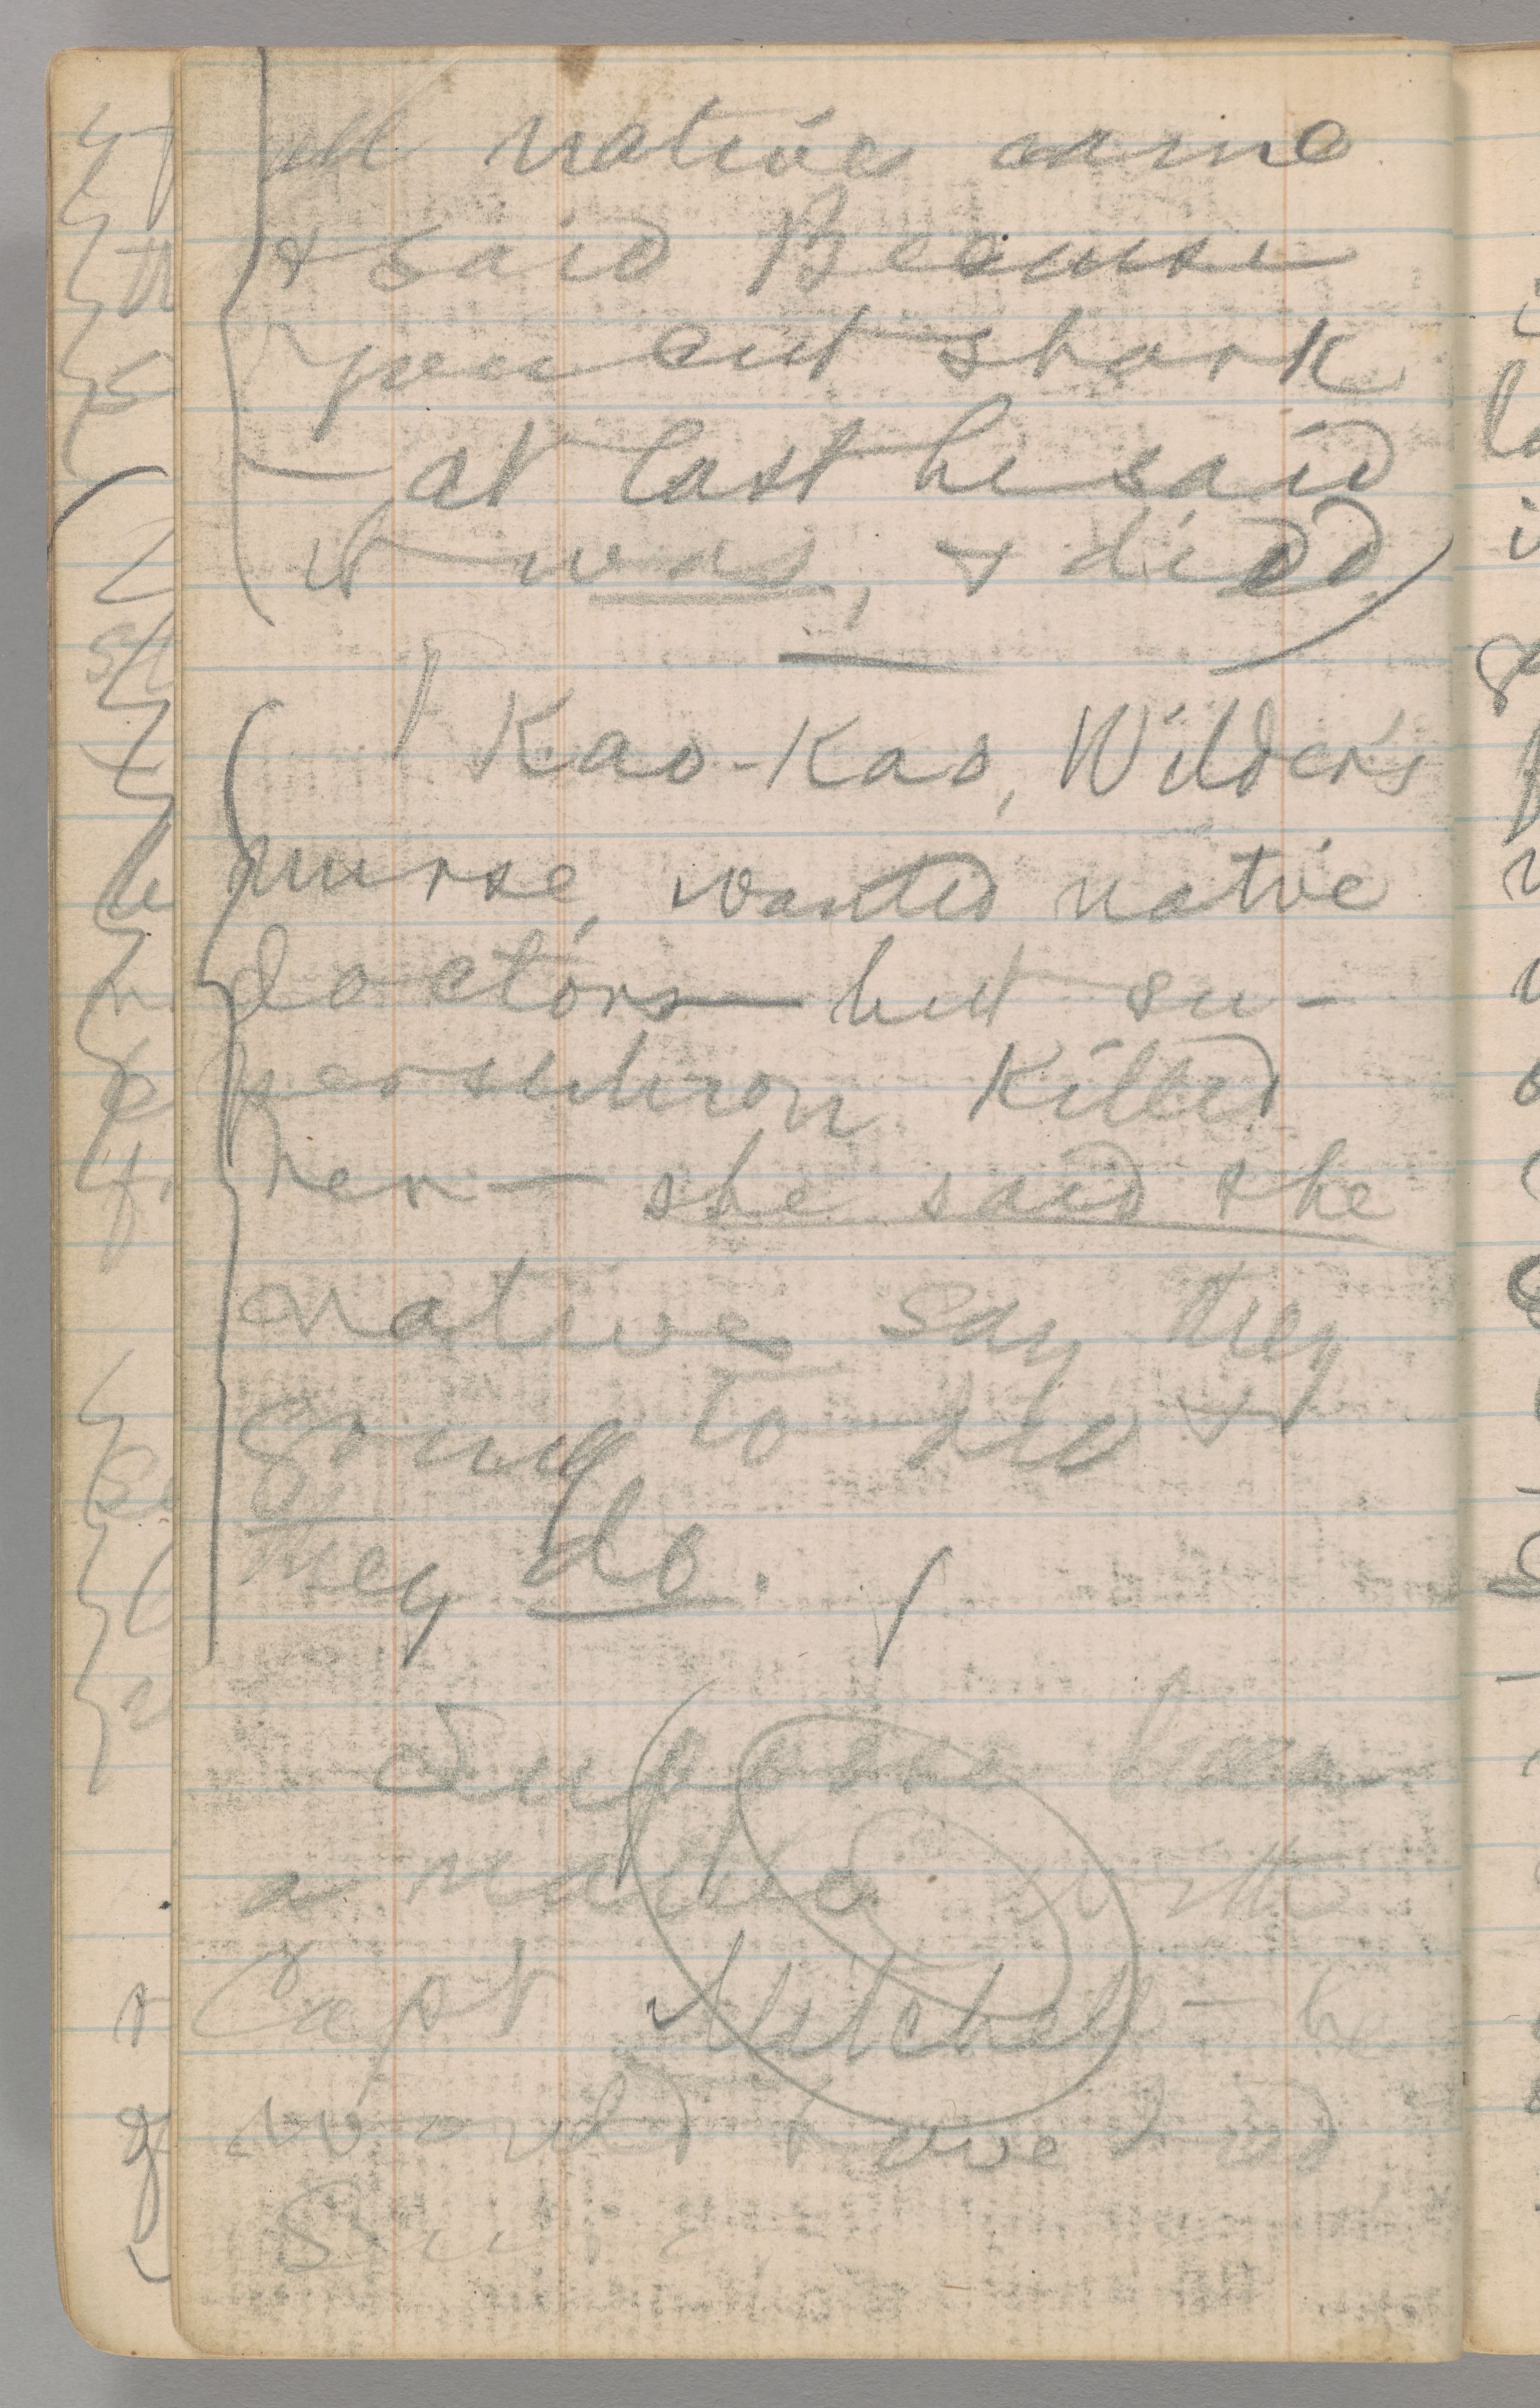 all natives came
& said Because
you cut shark
— at last he said
it was, & died.
Kao-Kao, Wilder's
nurse, wanted native
doctors—but su-
perstition killed
her— she said she
natives say they
going to die &
they do.
Suppose been
a native with
Capt Mitchell— he
would have had